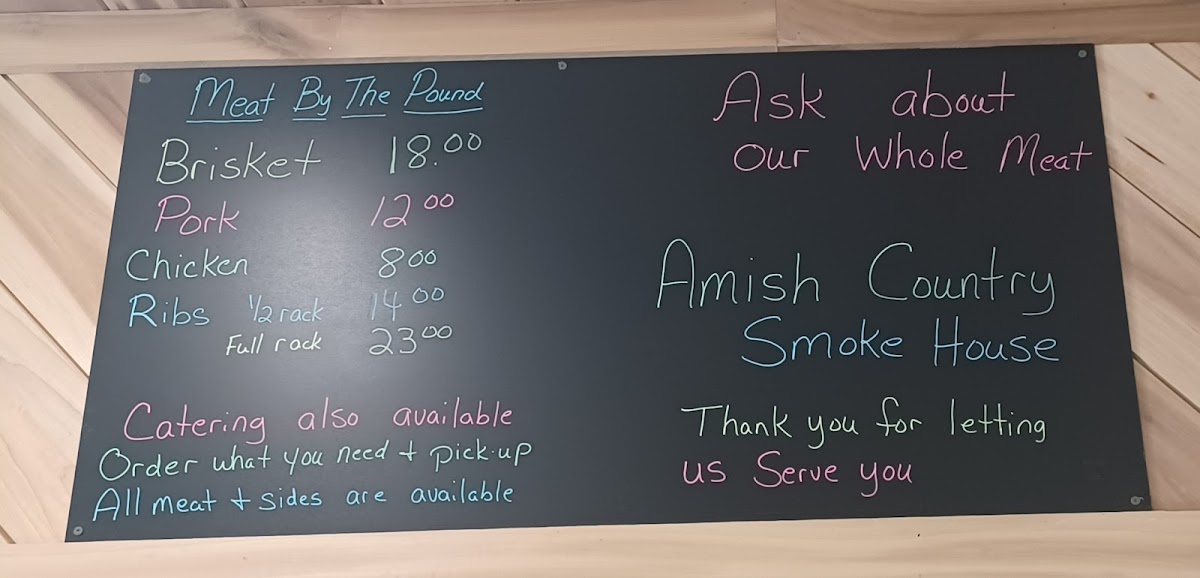 Meat By The Pound
Brisket 18.00
Pork 12 00
Chicken 8 00
Ribs 1/2 rack 14 00
Full rack 23 00
Catering also available
Order what you need + pick-up
All meat + sides are available
Ask about
our Whole Meat
Amish Country
Smoke House
Thank you for letting
us Serve you